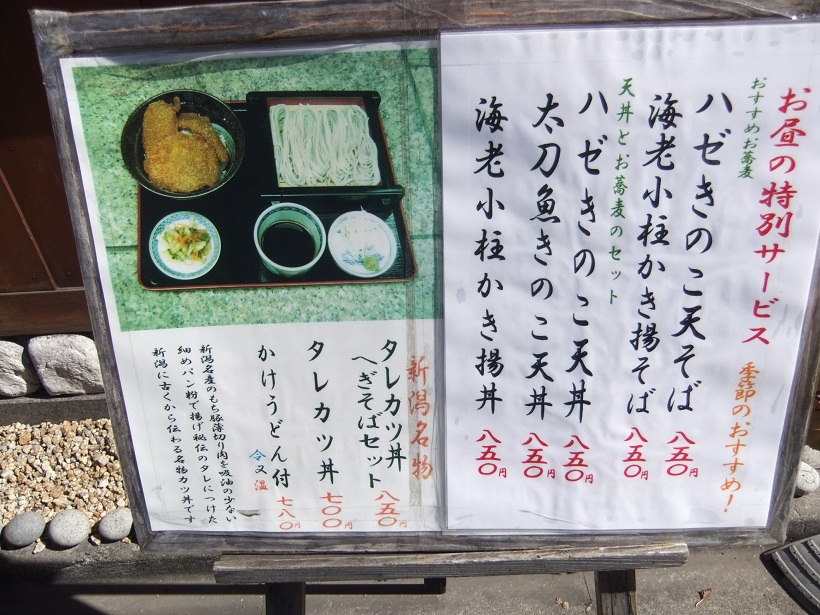 お昼の特別サービス
季節のおすすめ!
おすすめお蕎麦
ハゼきのこ天そば 八五〇円
海老小柱かき揚そば 八五〇円
天丼とお蕎麦のセット
ハゼきのこ天丼 八五〇円
太刀魚きのこ天丼 八五〇円
海老小柱かき揚丼 八五〇円
新潟名物
タレカツ丼
へぎそばセット 八五〇円
タレカツ丼 七〇〇円
かけうどん付 冷又温 七八〇円
新潟名産のもち豚薄切り肉を吸油の少ない
細めパン粉で揚げ秘伝のタレにつけた
新潟に古くから伝わる名物カツ丼です